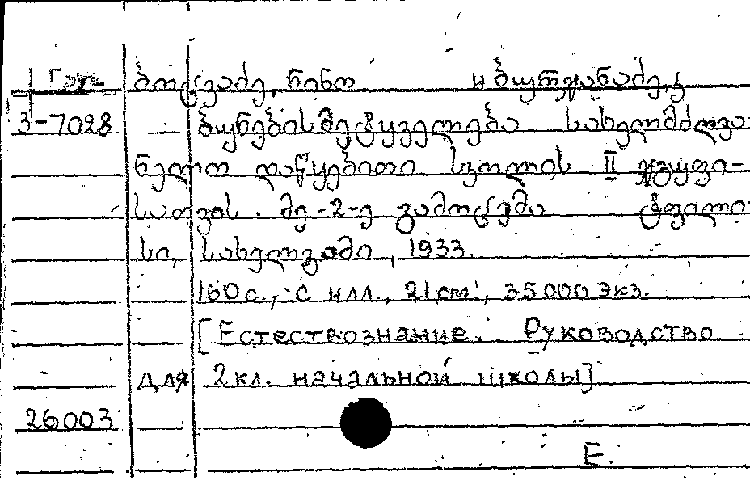 ბოცვაძე, ნინო и ბურჯანაძე, ქ
3-7028 ბუნებისმეტყველება სახელმძღვა
ნელო დაწყებითი სკოლის II ჯგუფი-
სათვის. მე-2-ე გამოცემა ტფილი
სი, სახელგამი, 1933.
160 с., с илл., 21 см, 35000 экз.
[Естествознание. Руководство
для 2 кл. начальной школы]
26003
Е.